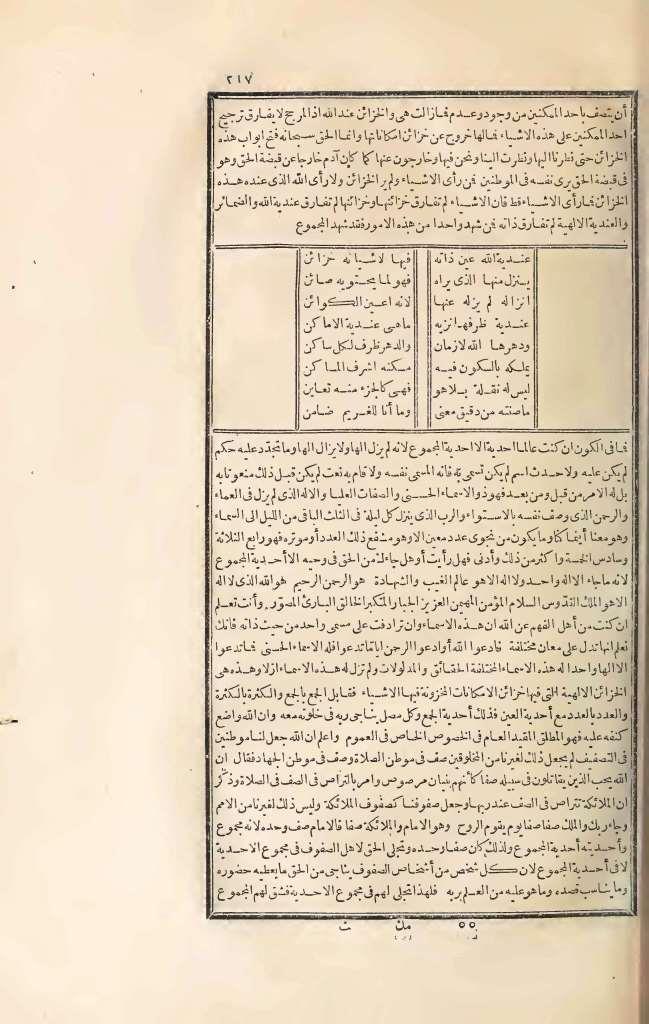 ٢١٧
أن يتصف بأحد الممكنين من وجود وعدم فما زالت هى والخزائن عند الله اذ المرجح لا يفارق ترجيح
احد الممكنين على هذه الاشياء فما لها خروج عن خزائن امكاناتها وانما الحق سبحانه فتح ابواب هذه
الخزائن حتى نظرنا اليها ونظرت الينا ونحن فيها وخارجون عنها كما كان آدم خارجا عن قبضة الحق وهو
فى قبضة الحق يرى نفسه فى الموطنين فمن رأى الاشياء ولم ير الخزائن ولا رأى الله الذى عنده هذه
الخزائن فما رأى الاشياء قط فان الاشياء لم تفارق خزائنها وخزائنها لم تفارق عندية الله والضمائر
والعندية الالهية لم تفارق ذاته فمن شهد واحدا من هذه الامور فقد شهد المجموع
عندية الله عين ذاته فيها لاشيائه خزائن
ينزل منها الذى يراه فهو لما يحتويه صائن
انزاله لم يزله عنها لانه اعين الكوائن
عندية ظرفها نزيه ما هى عندية الاماكن
ودهرها الله لا زمان والدهر ظرف لكل ساكن
يملكه بالسكون فيه مسكنه اشرف المساكن
ليس له نقلة بلا هو فهى كالجزء منه تعاين
ما صنته من دقيق معنى وما أنا للغريم ضامن
فما فى الكون ان كنت عالما احدية الا احدية المجموع لانه لم يزل الها ولا يزال الها وما تجدد عليه حكم
لم يكن عليه ولا حدث اسم لم يكن تسمى به فانه المسمى نفسه ولا قام به نعت لم يكن قبل ذلك منعوتا به
بل له الامر من قبل ومن بعد فهو ذو الاسماء الحسنى والصفات العليا والاله الذى لم يزل فى العماء
والرحمن الذى وصف نفسه بالاستواء والرب الذى ينزل كل ليلة فى الثلث الباقى من الليل الى السماء
وهو معنا أينما كنا وما يكون من نجوى عدد معين الا وهو مشفع ذلك العدد أو موتره فهو رابع الثلاثة
وسادس الخمسة واكثر من ذلك وأدنى فهل رأيت أو هل جاءك من الحق فى وحيه الا أحدية المجموع
لانه ما جاء الا اله واحد ولا اله الا هو عالم الغيب والشهادة هو الرحمن الرحيم هو الله الذى لا اله
الا هو الملك القدوس السلام المؤمن المهيمن العزيز الجبار المتكبر الخالق البارئ المصوّر وأنت تعلم
ان كنت من أهل الفهم عن الله ان هذه الاسماء وان ترادفت على مسمى واحد من حيث ذاته فانك
تعلم انها تدل على معان مختلفة قل ادعوا الله أو ادعوا الرحمن اياما تدعوا فله الاسماء الحسنى فما تدعوا
الا الها واحدا له هذه الاسماء المختلفة الحقائق والمدلولات ولم تزل له هذه الاسماء ازلا وهذه هى
الخزائن الالهية التى فيها خزائن الامكانات المخزونة فيها الاشياء فقابل الجمع بالجمع والكثرة بالكثرة
والعدد بالعدد مع أحدية العين فذلك أحدية الجمع وكل مصل يناجى ربه فى خلوته معه وان الله واضع
كنفه عليه فهو المطلق المقيد العام فى الخصوص الخاص فى العموم واعلم ان الله جعل لنا موطنين
فى التصفيف لم يجعل ذلك لغيرنا من المخلوقين صف فى موطن الصلاة وصف فى موطن الجهاد فقال ان
الله يحب الذين يقاتلون فى سبيله صفا كأنهم بنيان مرصوص وأمر بالتراص فى الصف فى الصلاة وذكر
ان الملائكة تتراص فى الصف عند ربها وجعل صفوفنا كصفوف الملائكة وليس ذلك لغيرنا من الامم
وجاء ربك والملك صفا صفا يوم يقوم الروح وهو الامام والملائكة صفا فالامام صف وحده لانه مجموع
وأحديته أحدية المجموع ولذلك كان صفا وحده وتجلى الحق لاهل الصفوف فى مجموع الاحدية
لا فى أحدية المجموع لان كل شخص من أشخاص الصفوف يناجى من الحق ما يعطيه حضوره
وما يناسب قصده وما هو عليه من العلم بربه فلهذا تجلى لهم فى مجموع الاحدية فسبق لهم المجموع
٥٥ مك ث